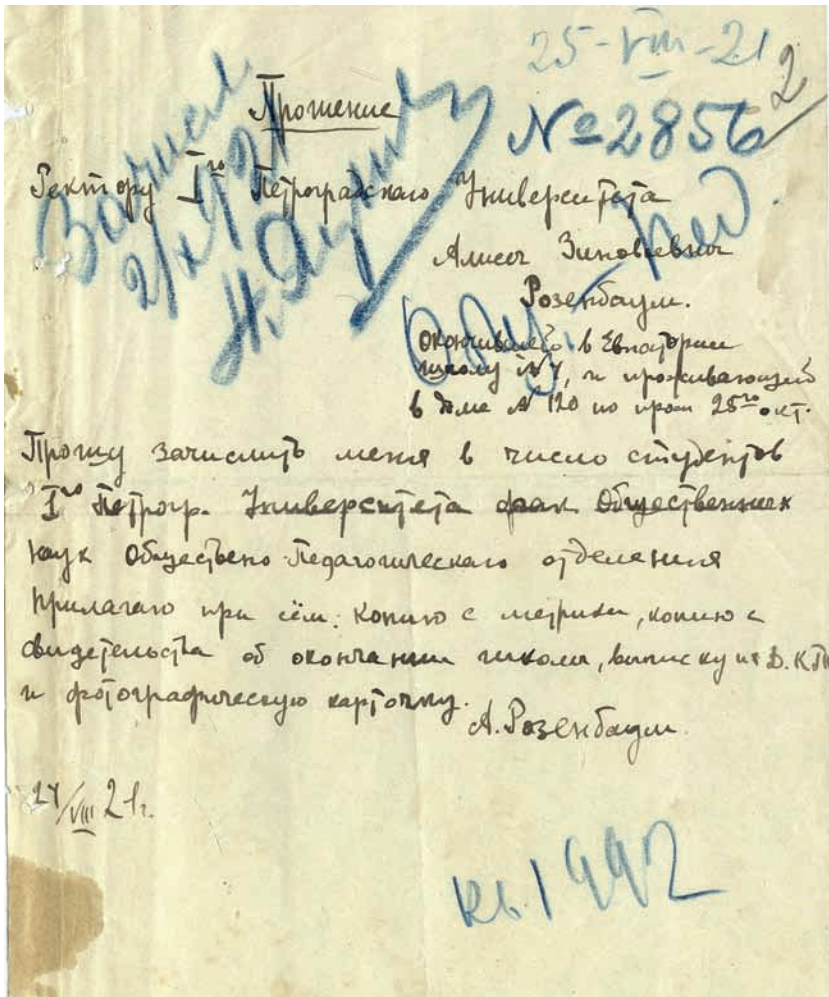 25-VIII-21
2
№ 2856
Прошение
Ректору Iго Петроградскаго Университета
Зачисл.
Алисы Зиновьевны
Розенбаум.
окончившей в Евпатории
школу № 4, и проживающей
в доме № 120 по просп 25го окт.
Прошу зачислить меня в число студентов
Iго Петрогр. Университета фак Общественных
наук Общественo-Педагогическаго отделения
Прилагаю при сём: копию с метрики, копию с
свидетельства об окончании школы, выписку из
и фотографическую карточку.
А. Розенбаум.
24/VIII 21г.
1992